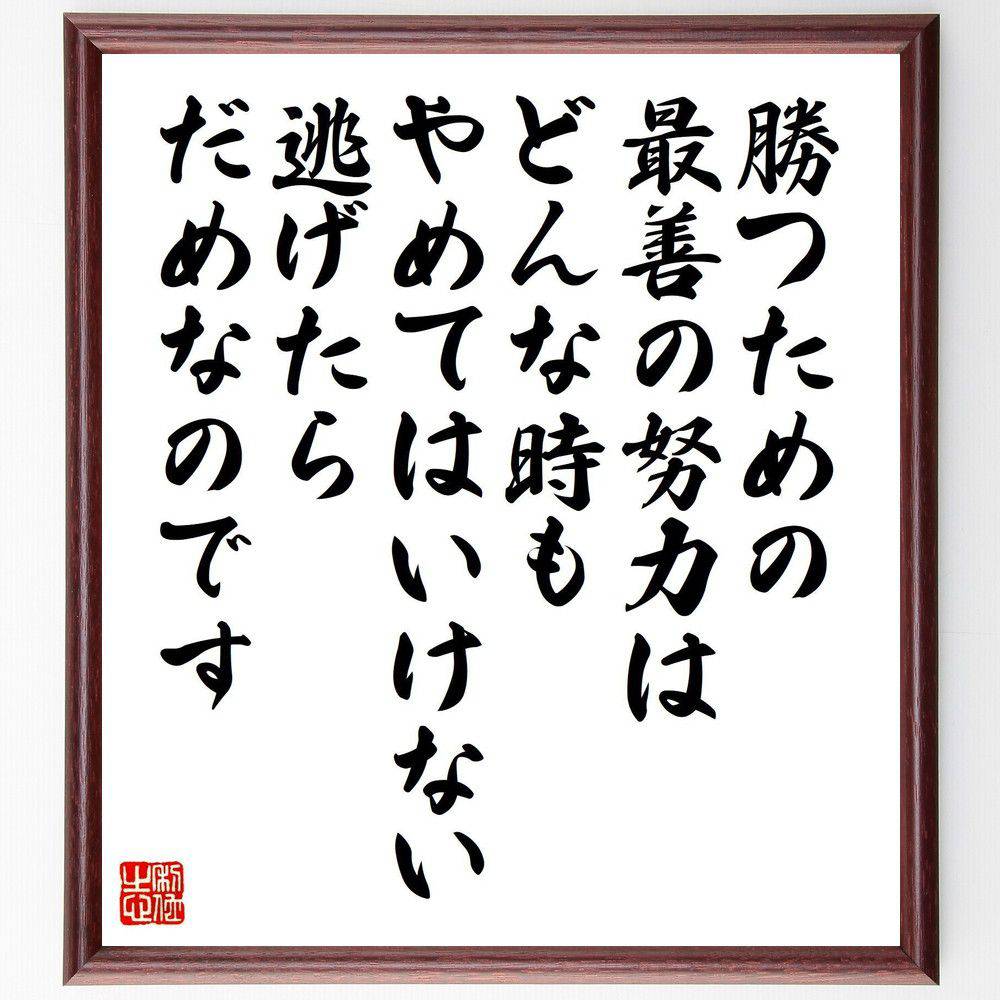 勝つための
最善の努力は
どんな時も
やめてはいけない
逃げたら
だめなのです